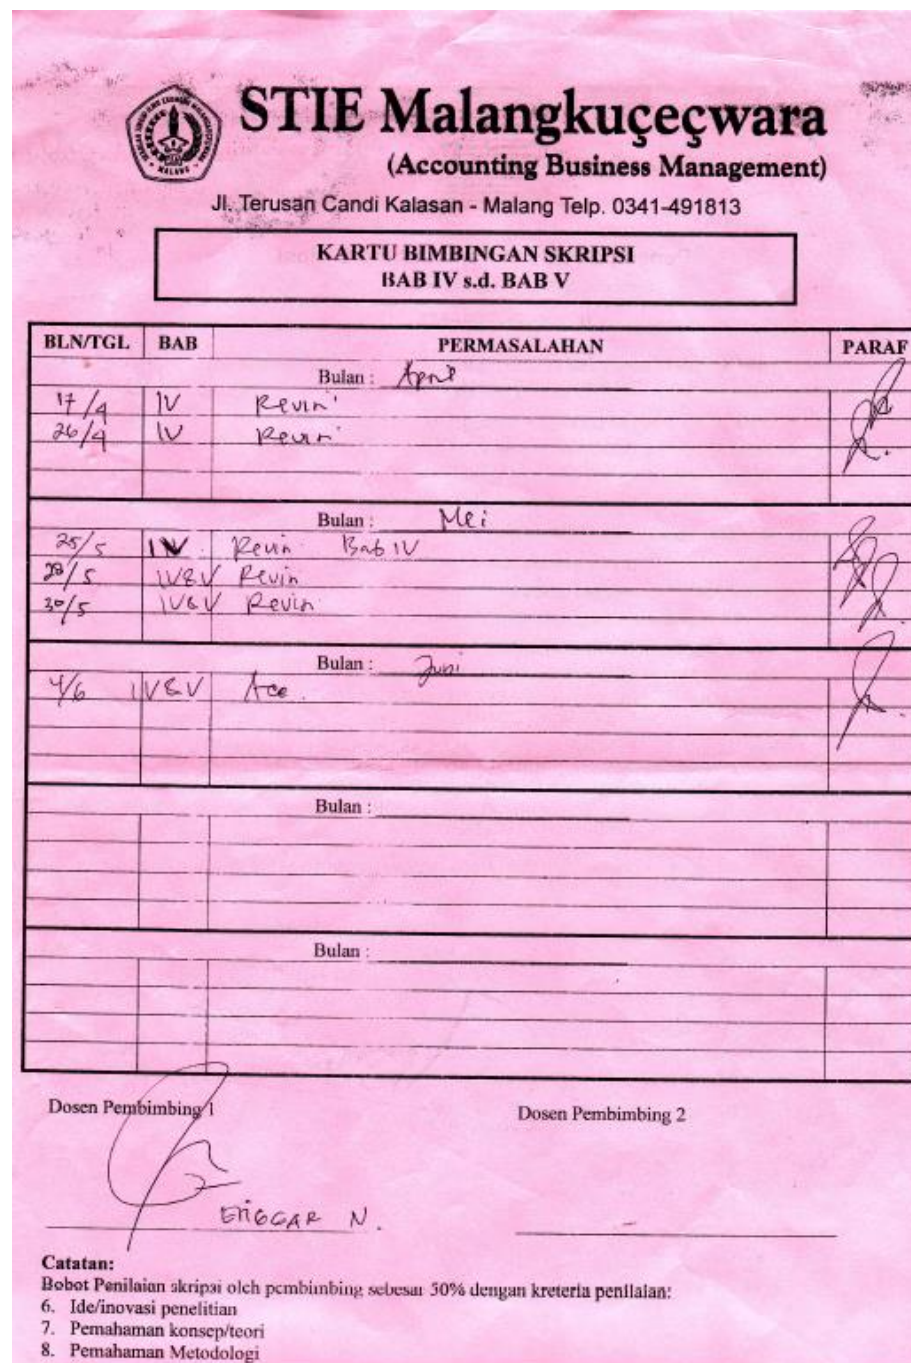 STIE Malangkuçeçwara
(Accounting Business Management)
Jl. Terusan Candi Kalasan - Malang Telp. 0341-491813
KARTU BIMBINGAN SKRIPSI
BAB IV s.d. BAB V
BLN/TGL BAB PERMASALAHAN PARAF
Bulan : April
17/4 IV Revisi
26/4 IV Revisi
Bulan : Mei
25/5 IV Revisi Bab IV
28/5 IV&V Revisi
30/5 IV&V Revisi
Bulan : Juni
4/6 IV&V Acc.
Bulan :
Bulan :
Dosen Pembimbing 1 Dosen Pembimbing 2
ENGGAR N.
Catatan:
Bobot Penilaian skripsi oleh pembimbing sebesar 50% dengan kreteria penilaian:
6. Ide/inovasi penelitian
7. Pemahaman konsep/teori
8. Pemahaman Metodologi